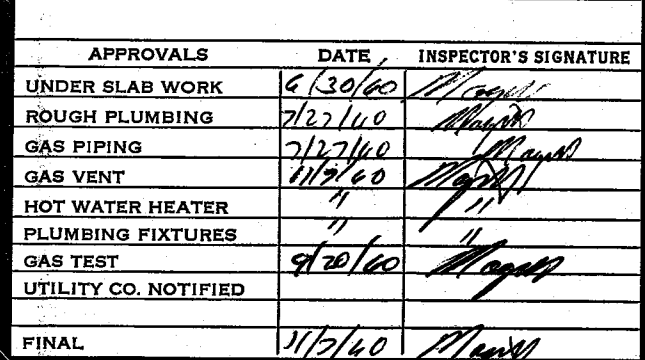 APPROVALS DATE INSPECTOR'S SIGNATURE
UNDER SLAB WORK 6/30/60
ROUGH PLUMBING 7/27/60
GAS PIPING 7/27/60
GAS VENT 11/7/60
HOT WATER HEATER " "
PLUMBING FIXTURES " "
GAS TEST 9/20/60
UTILITY CO. NOTIFIED
FINAL 11/7/60